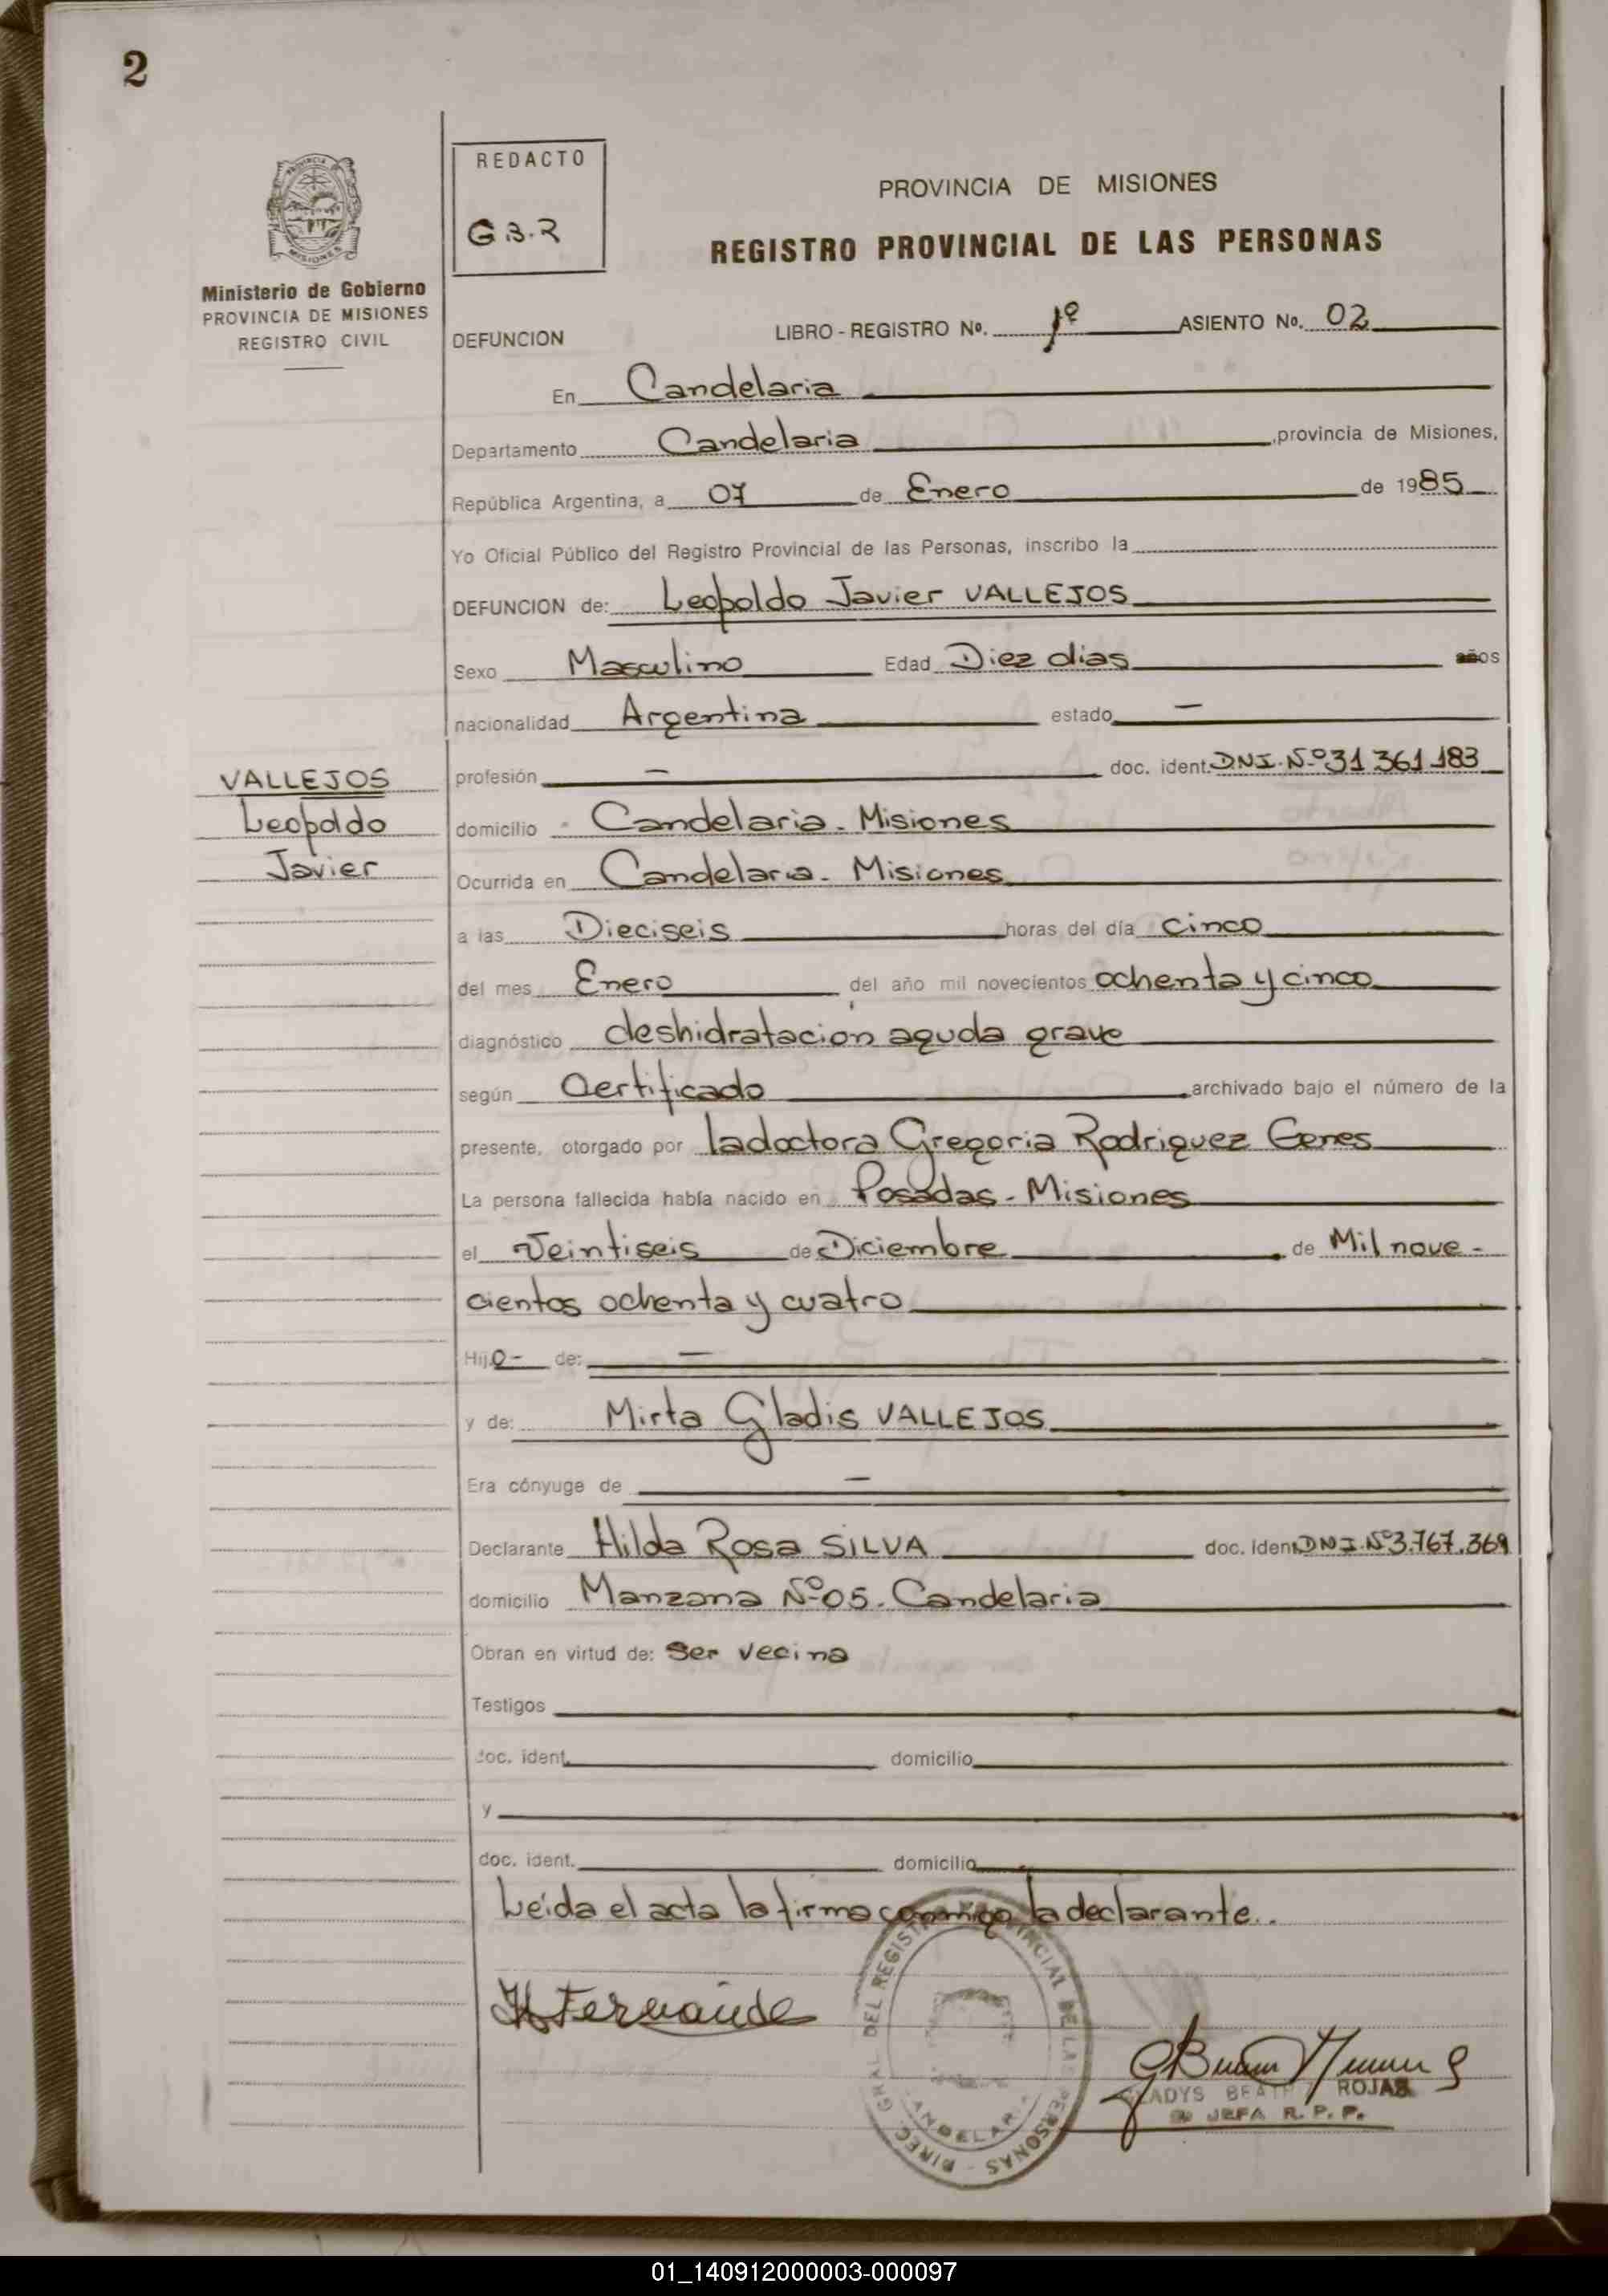 2
REDACTO
G B. R
PROVINCIA DE MISIONES
REGISTRO PROVINCIAL DE LAS PERSONAS
Ministerio de Gobierno
PROVINCIA DE MISIONES
REGISTRO CIVIL
DEFUNCION LIBRO - REGISTRO No. 1º ASIENTO No. 02
En Candelaria
Departamento Candelaria ,provincia de Misiones,
República Argentina, a 07 de Enero de 1985
Yo Oficial Público del Registro Provincial de las Personas, inscribo la
DEFUNCION de: Leopoldo Javier VALLEJOS
Sexo Masculino Edad Diez dias años
nacionalidad Argentina estado —
profesión — doc. ident. DNI. Nº 31 361 183
VALLEJOS
Leopoldo
Javier
domicilio Candelaria - Misiones
Ocurrida en Candelaria - Misiones
a las Dieciseis horas del día cinco
del mes Enero del año mil novecientos ochenta y cinco
diagnóstico deshidratacion aguda grave
según Certificado archivado bajo el número de la
presente, otorgado por la doctora Gregoria Rodriguez Genes
La persona fallecida había nacido en Posadas - Misiones
el Veintiseis de Diciembre de Mil nove-
cientos ochenta y cuatro
Hijo - de: —
y de: Mirta Gladis VALLEJOS
Era cónyuge de —
Declarante Hilda Rosa SILVA doc. ident DNI. Nº 3.767.369
domicilio Manzana Nº 05. Candelaria
Obran en virtud de: Ser vecina
Testigos
doc. ident. domicilio
y
doc. ident. domicilio
Leída el acta la firma conmigo la declarante..
DIREC. GRAL DEL REGISTRO PROVINCIAL DE LAS PERSONAS -
CANDELARIA
GLADYS BEATRIZ ROJAS
JEFA R. P. P.
01_140912000003-000097